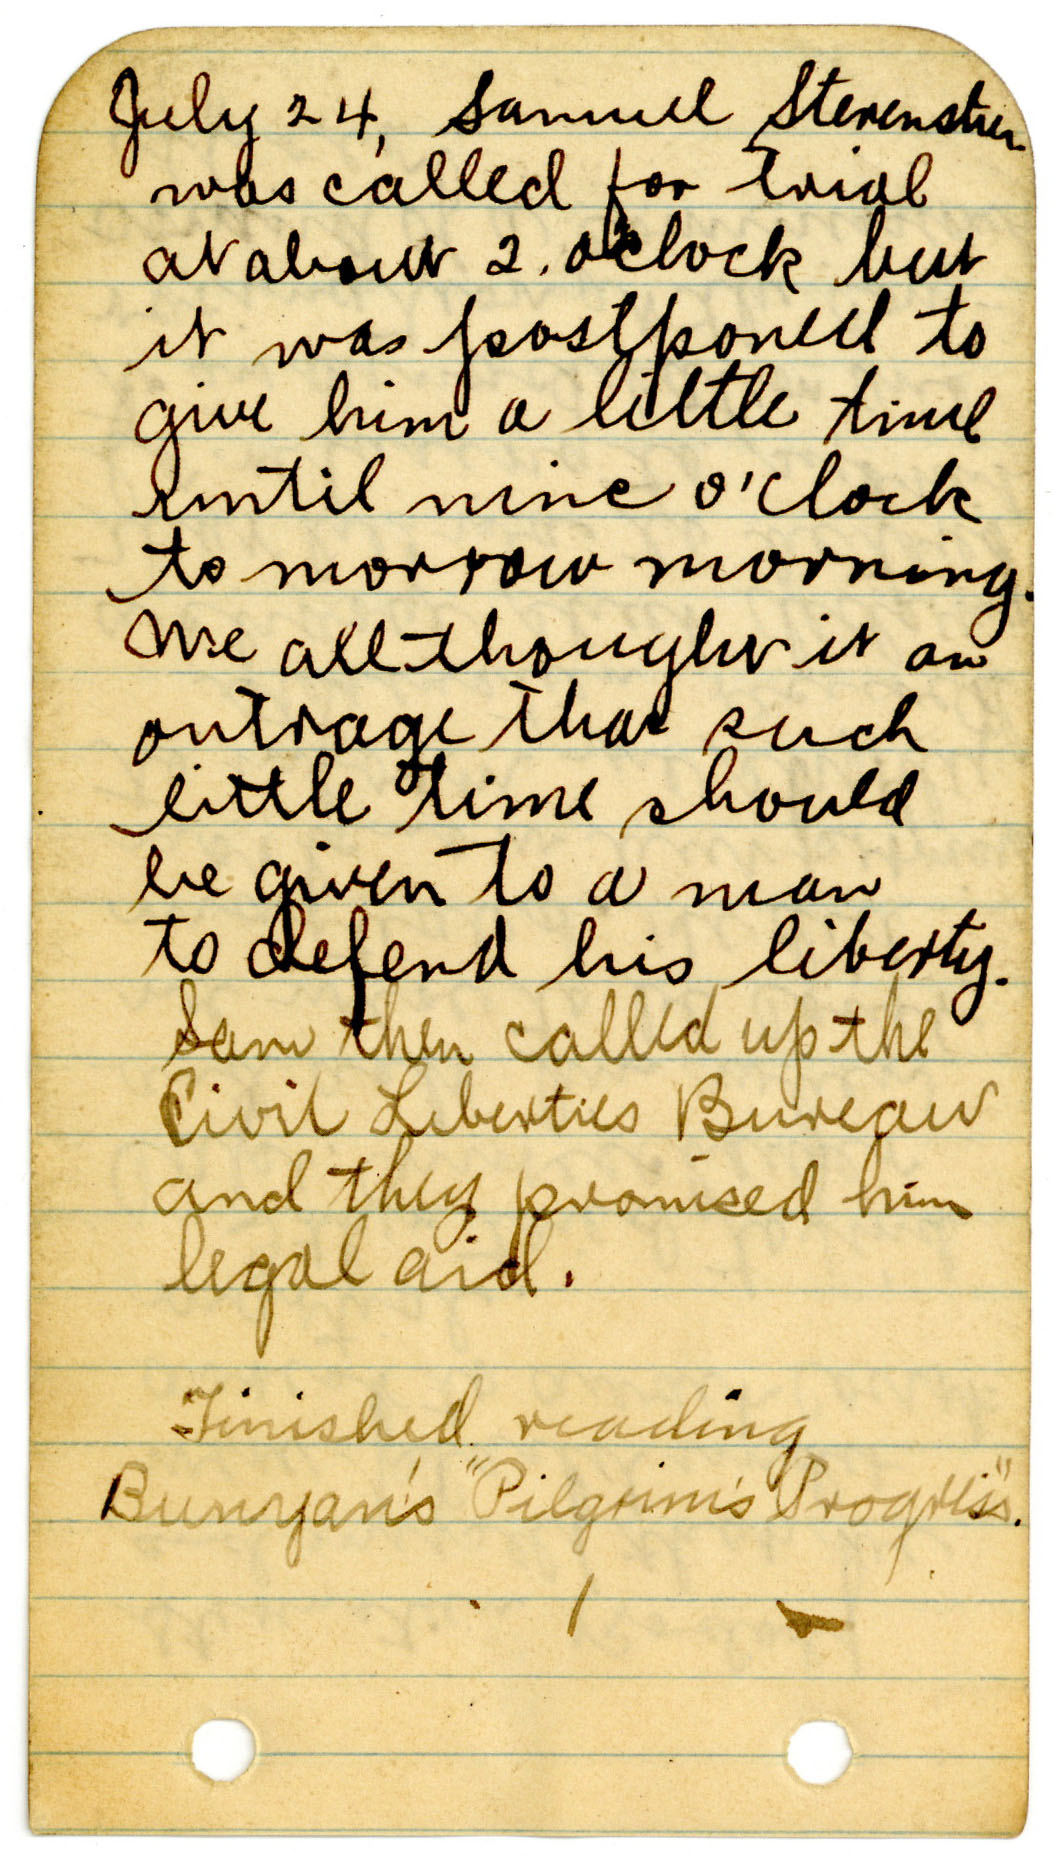 July 24, Samuel
was called for trial
at about 2. o'clock but
it was postponed to
give him a little time
until nine o'clock
to morrow morning.
We all thought it an
outrage that such
little time should
be given to a man
to defend his liberty.
Sam then called up the
Civil Liberties Bureau
and they promised him
legal aid.
Finished reading
Bunyan's "Pilgrim's Progress".